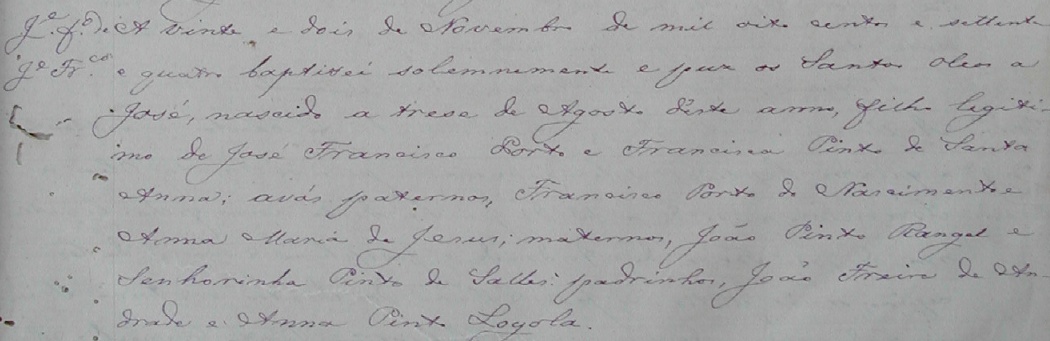 J.e f.o de A vinte e dois de Novembro de mil oito centos e settenta
J.e Fr.co e quatro baptisei solemnemente e puz os Santos oleos a
José, nascido a trese de Agosto d'este anno, filho legiti-
mo de José Francisco Porto e Francisca Pinto de Santa
Anna; avós paternos, Francisco Porto do Nascimento e
Anna Maria de Jesus; maternos, João Pinto Rangel e
Senhorinha Pinto de Salles: padrinhos, João Freire de An-
drade e Anna Pinto Loyola.